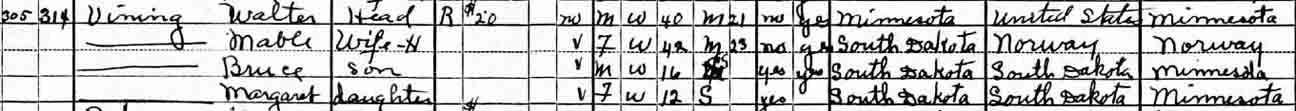 305 314 Vining Walter Head R $20 no M W 40 M 21 no yes Minnesota United States Minnesota
Mable Wife-H v F W 42 M 23 no yes South Dakota Norway Norway
Bruce son v M W 16 S yes yes South Dakota South Dakota Minnesota
Margaret daughter v F W 12 S yes South Dakota South Dakota Minnesota